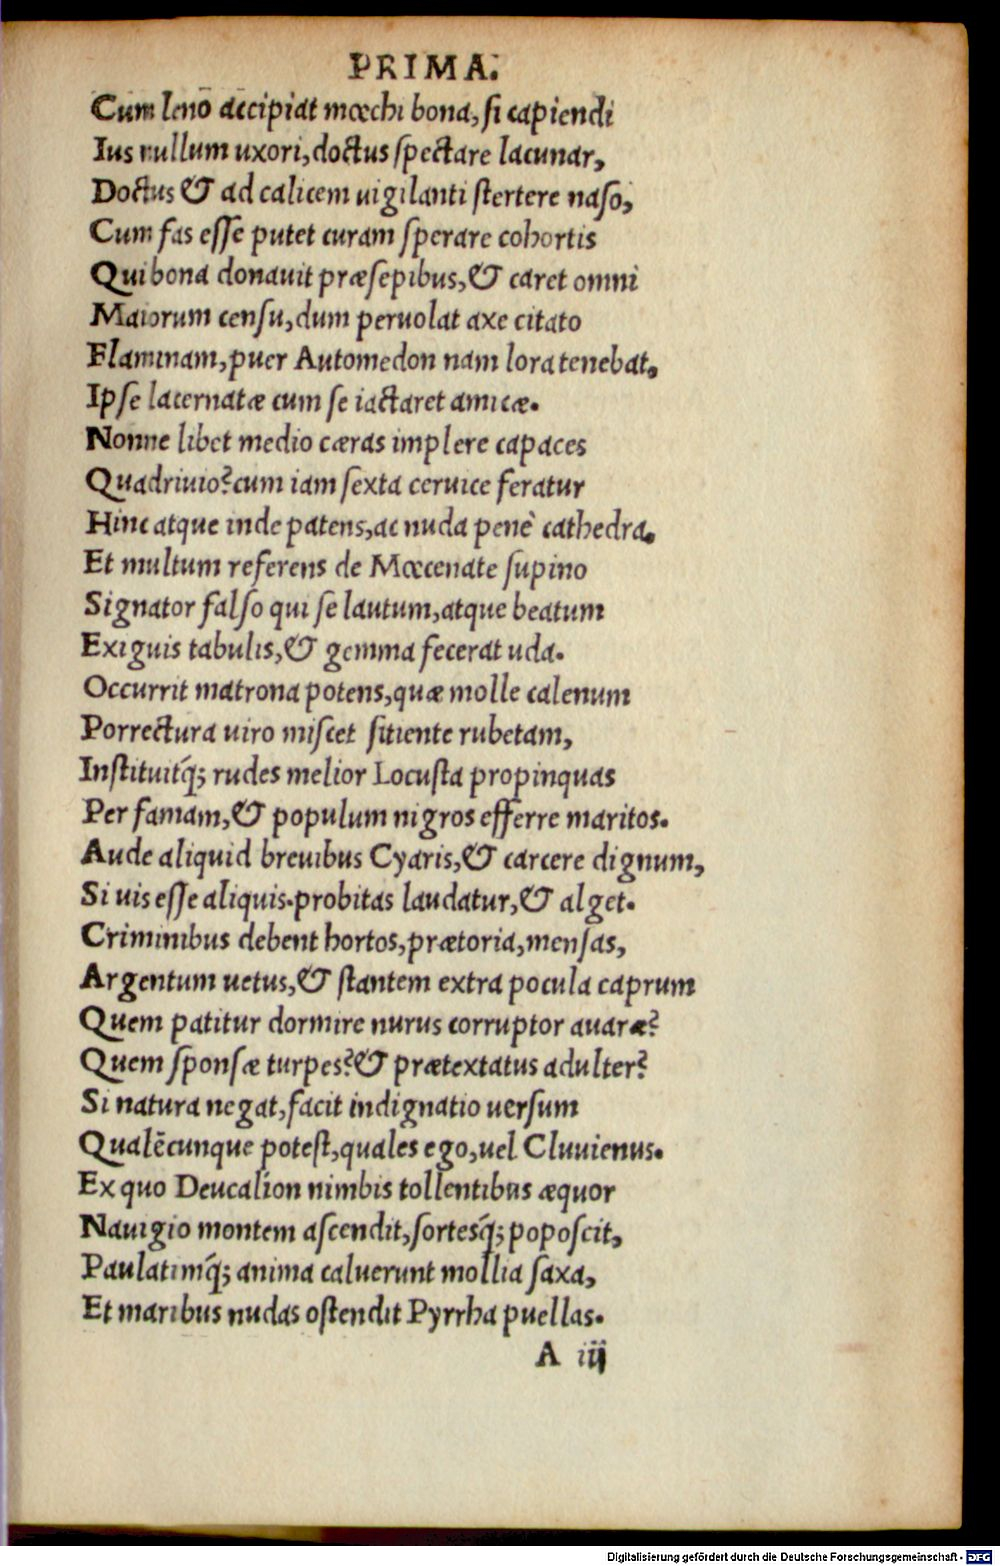 PRIMA.
Cum leno accipiat mœchi bona, si capiendi
Ius nullum uxori, doctus spectare lacunar,
Doctus & ad calicem uigilanti stertere naso,
Cum fas esse putet curam sperare cohortis
Qui bona donauit præsepibus, & caret omni
Maiorum censu, dum peruolat axe citato
Flaminam, puer Automedon nam lora tenebat,
Ipse lacernatæ cum se iactaret amicæ.
Nonne libet medio cæras implere capaces
Quadriuio? cum iam sexta ceruice feratur
Hinc atque inde patens, ac nuda penè cathedra.
Et multum referens de Mœcenate supino
Signator falso qui se lautum, atque beatum
Exiguis tabulis, & gemma fecerat uda.
Occurrit matrona potens, quæ molle calenum
Porrectura uiro miscet sitiente rubetam,
Instituitq́; rudes melior Locusta propinquas
Per famam, & populum nigros efferre maritos.
Aude aliquid breuibus Cyaris, & carcere dignum,
Si uis esse aliquis. probitas laudatur, & alget.
Criminibus debent hortos, prætoria, mensas,
Argentum uetus, & stantem extra pocula caprum
Quem patitur dormire nurus corruptor auaræ?
Quem sponsæ turpes? & prætextatus adulter?
Si natura negat, facit indignatio uersum
Qualēcunque potest, quales ego, uel Cluuienus.
Ex quo Deucalion nimbis tollentibus æquor
Nauigio montem ascendit, sortesq́; poposcit,
Paulatimq́; anima caluerunt mollia saxa,
Et maribus nudas ostendit Pyrrha puellas.
A iij
Digitalisierung gefördert durch die Deutsche Forschungsgemeinschaft - DFG